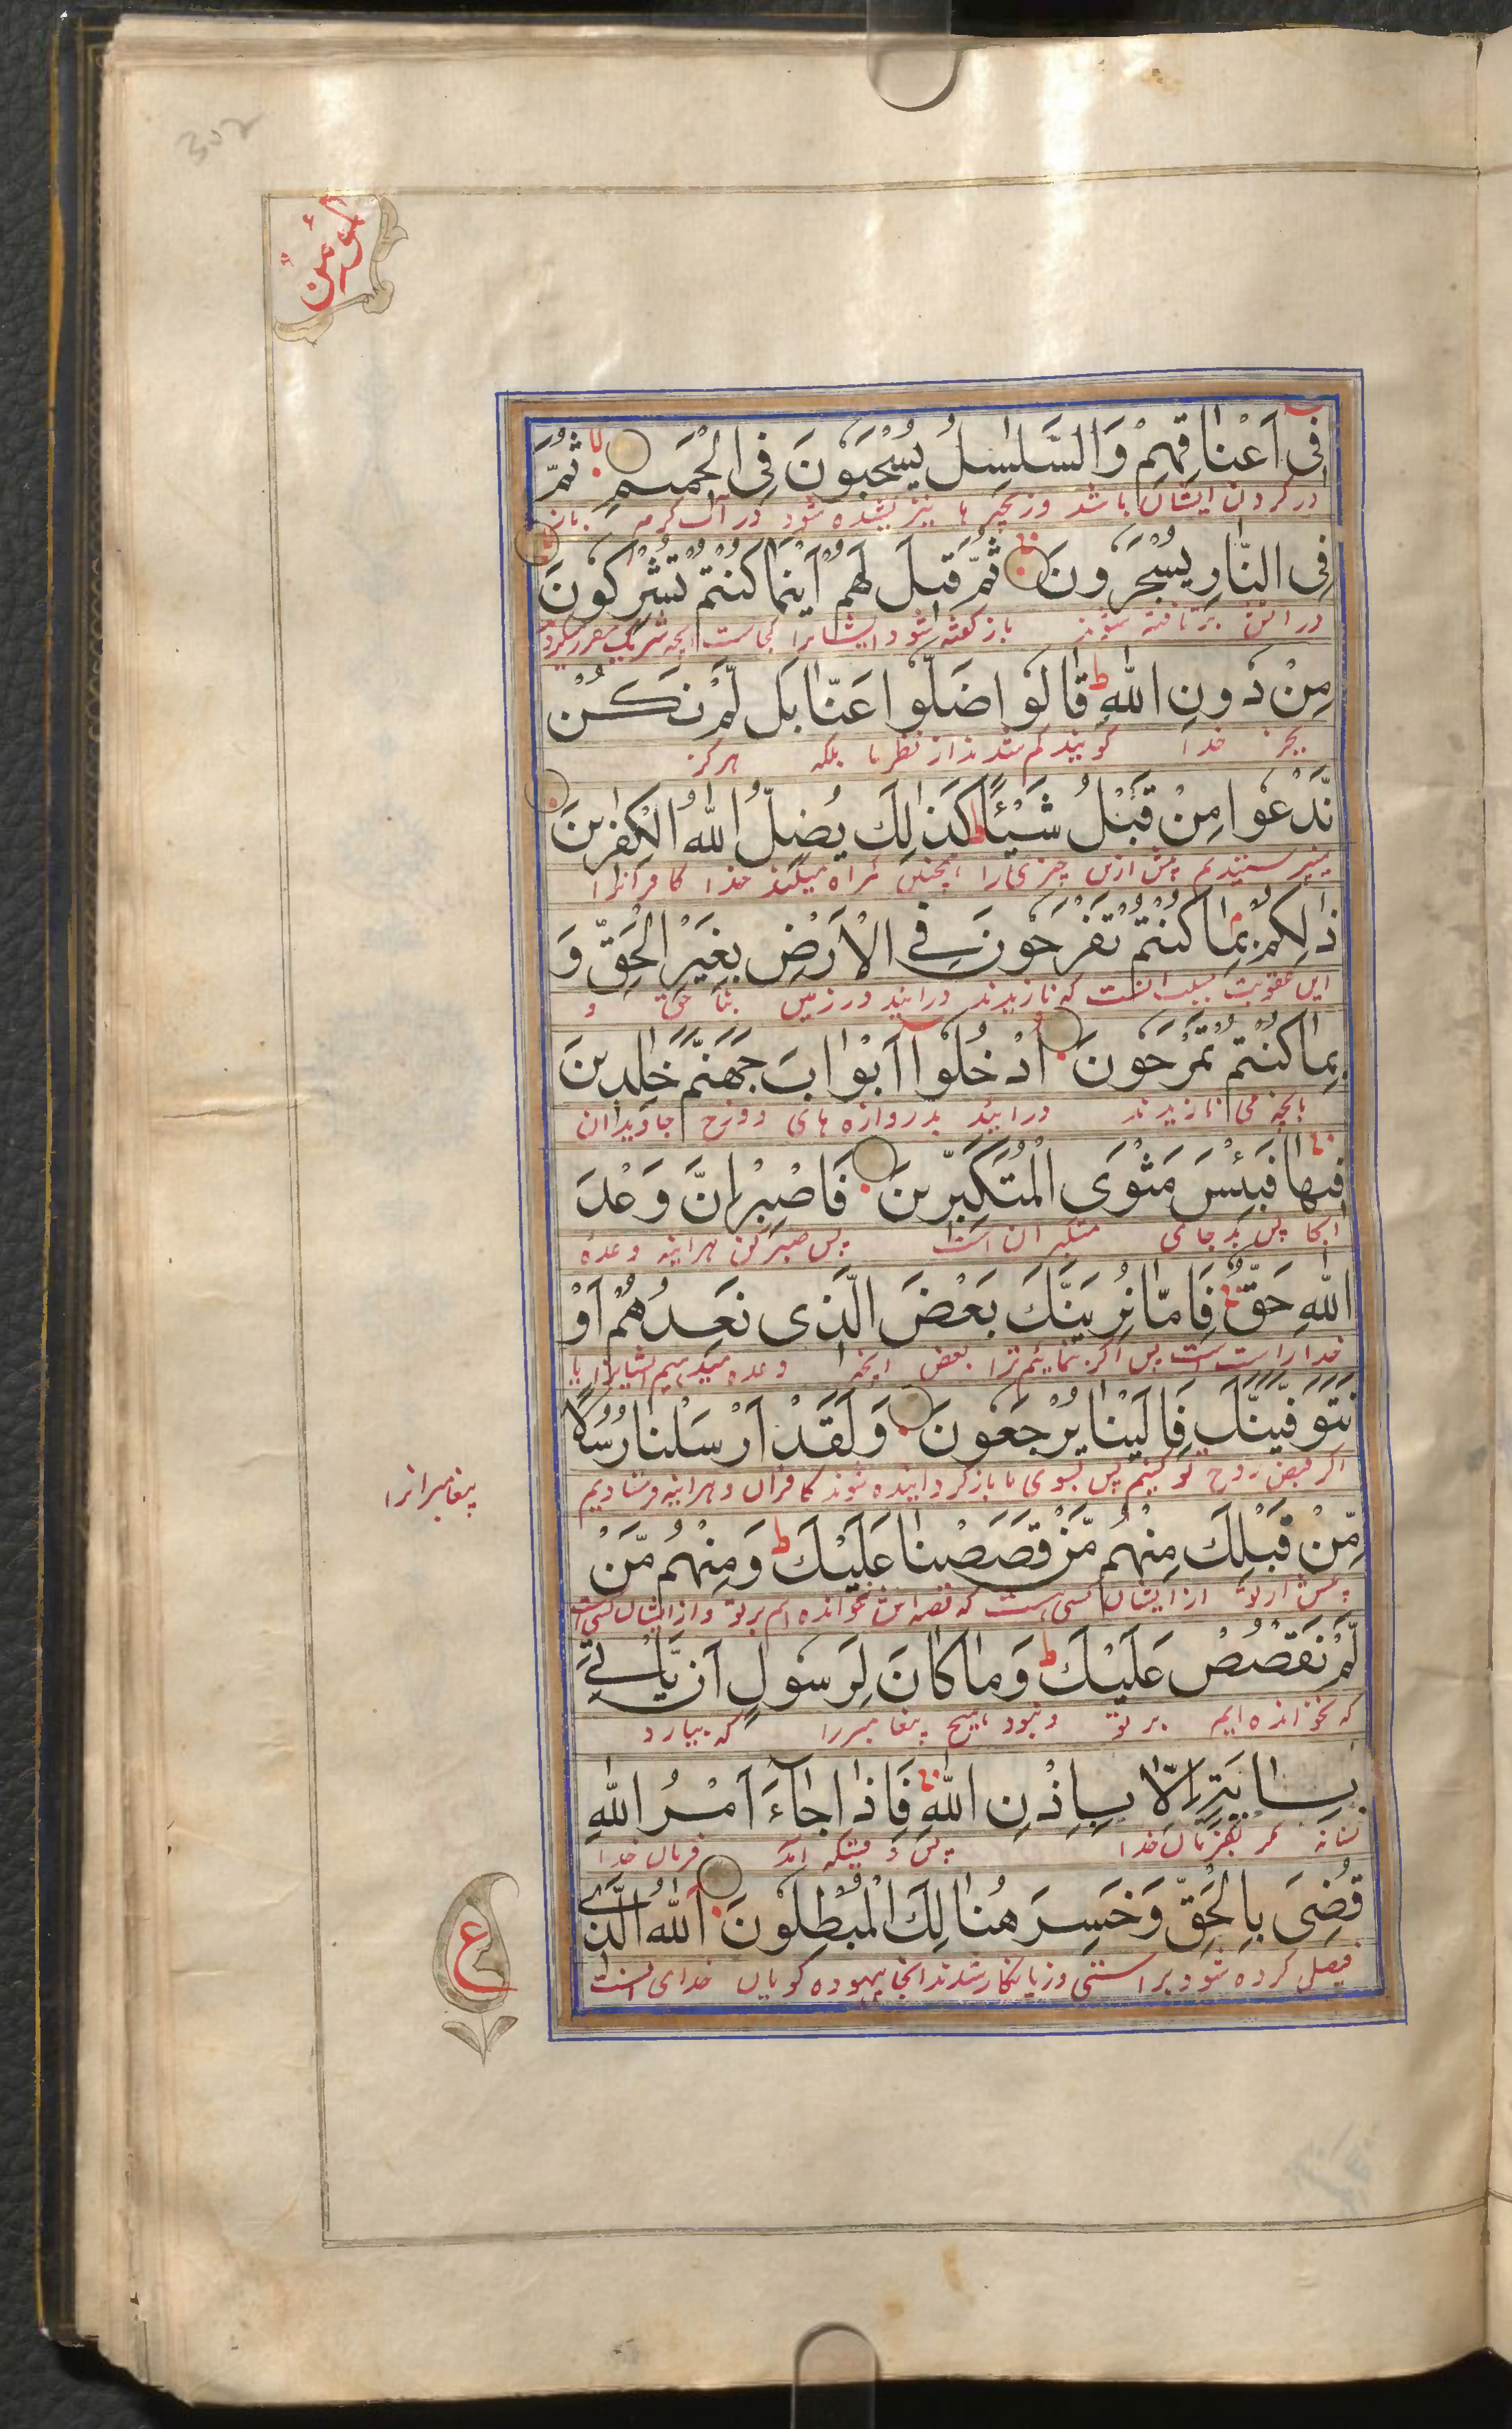 302
المؤمن
فِی اَعْنَاقِهِمْ وَالسَّلٰسِلُ یُسْحَبُوْنَ فِی الْحَمِیْمِ لا ثُمَّ
در گردن ایشان باشد و زنجیر ها نیز کشیده شود در آب گرم باز
فِی النَّارِ یُسْجَرُوْنَ ثُمَّ قِیْلَ لَهُمْ اَیْنَمَا كُنْتُمْ تُشْرِكُوْنَ
در آتش بر تافته شوند باز گفته شود ایشانرا کجاست آنچه شریک مقرر
مِنْ دُوْنِ اللّٰهِ ط قَالُوْا ضَلُّوْا عَنَّا بَلْ لَّمْ نَكُنْ
بجز خدا گویند گم شدند از نظر ما بلکه هرگز
نَّدْعُوْا مِنْ قَبْلُ شَیْـًٔا ط كَذٰلِكَ یُضِلُّ اللّٰهُ الْكٰفِرِیْنَ
نمیپرستیدیم پیش ازین چیزی را همچنین گمراه میکند خدا کافرانرا
ذٰلِكُمْ بِمَا كُنْتُمْ تَفْرَحُوْنَ فِی الْاَرْضِ بِغَیْرِ الْحَقِّ وَ
این عقوبت بسبب آنست که نازیدند در زمین بنا حق و
بِمَا كُنْتُمْ تَمْرَحُوْنَ اُدْخُلُوْٓا اَبْوَابَ جَهَنَّمَ خٰلِدِیْنَ
بآنچه می نازیدند در آیید بدروازه های دوزخ جاویدان
فِیْهَا فَبِئْسَ مَثْوَی الْمُتَكَبِّرِیْنَ فَاصْبِرْ اِنَّ وَعْدَ
آنجا پس بد جای متکبران است پس صبر کن هر آینه وعده
اللّٰهِ حَقٌّ فَاِمَّا نُرِیَنَّكَ بَعْضَ الَّذِی نَعِدُهُمْ اَوْ
خدا راست است پس اگر بنماییم ترا بعض آنچه وعده میدهیم ایشانرا یا
نَتَوَفَّیَنَّكَ فَاِلَیْنَا یُرْجَعُوْنَ وَلَقَدْ اَرْسَلْنَا رُسُلًا
اگر قبض روح تو کنیم پس بسوی ما باز گردانیده شوند کافران و هر آینه فرستادیم
پیغامبرانرا
مِّنْ قَبْلِكَ مِنْهُمْ مَّنْ قَصَصْنَا عَلَیْكَ ط وَمِنْهُمْ مَّنْ
پیش از تو از ایشان کسی هست که قصه اش خوانده ایم بر تو و از ایشان کسی است
لَّمْ نَقْصُصْ عَلَیْكَ ط وَمَا كَانَ لِرَسُوْلٍ اَنْ یَّاْتِیَ
که نخوانده ایم بر تو و نبود هیچ پیغامبر را که بیارد
بِاٰیَةٍ اِلَّا بِاِذْنِ اللّٰهِ فَاِذَا جَآءَ اَمْرُ اللّٰهِ
نشانه مگر بفرمان خدا پس وقتیکه آمد فرمان خدا
قُضِیَ بِالْحَقِّ وَخَسِرَ هُنَالِكَ الْمُبْطِلُوْنَ اَللّٰهُ الَّذِیْ
فیصل کرده شود براستی و زیانکار شدند آنجا بیهوده گویان خدای آنست
ع